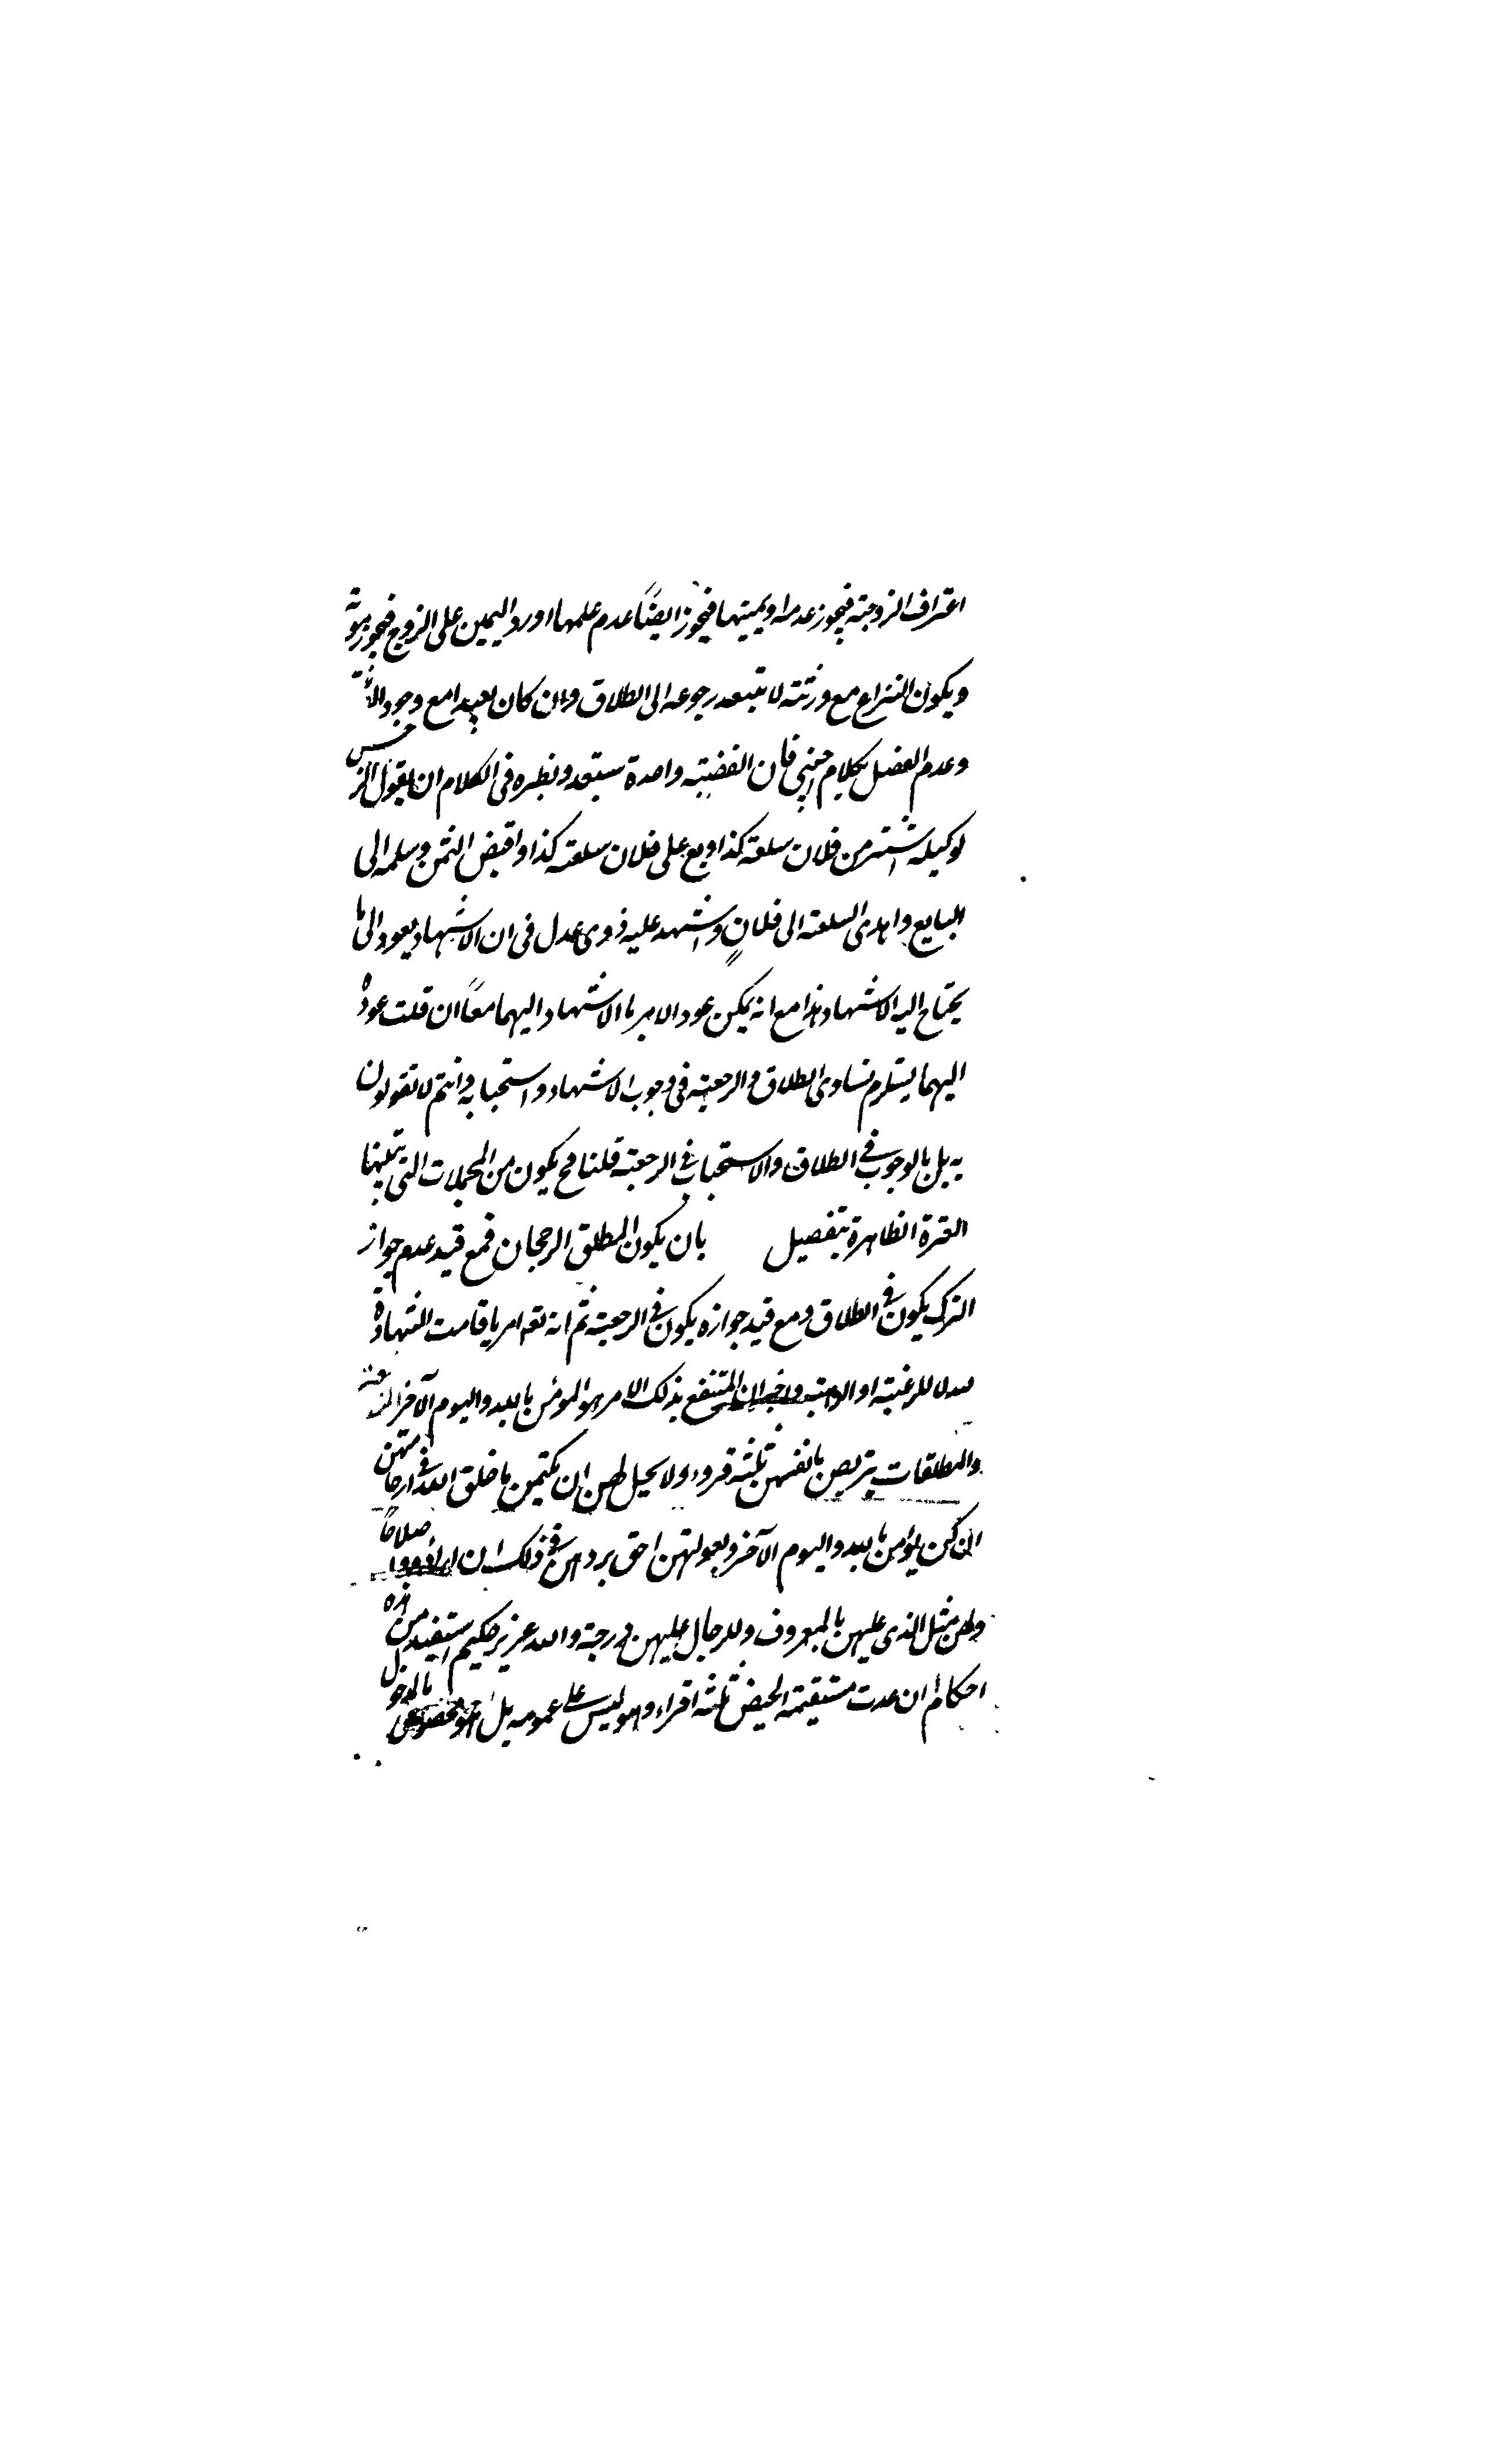 اعتراف الزوجة فيجوز عدمه او يمينها فيجوز ايضاً عدم علمها او رد اليمين على الزوج فيجوز موته
ويكون النزاع مع ورثته لا يتبعد رجوعه الى الطلاق وان كان بعيدا مع وجود
وعدم الفصل بكلام اجنبي فان القضية واحدة ستبعد ونظيره في الكلام ان يقول
لوكيله اشتر من فلان سلعة كذا وبع على فلان سلعة كذا واقبض الثمن وسلمه الى
البايع واهدى السلعة الى فلانٍ واشهد عليه ذوى عدل في ان الاشهاد يعود الى ما
يحتاج اليه الاشهاد هذا مع انه يمكن عود الامر بالاشهاد اليهما معاً ان قلت عوده
اليهما يستلزم تساوى الطلاق والرجعة في وجوب الاشهاد واستحبابه وانتم لا تقولون
به بل بالوجوب في الطلاق والاستحباب في الرجعة قلنا فح يكون من المجملات التى بينها
العترة الطاهرة بتفصيل بان يكون المطلق الرجحان فمع قيد عدم جواز
الترك يكون في الطلاق ومع قيد جوازه يكون في الرجعة ثم انه تعالى امر باقامت الشهادة
لله لا للرغبة او الرهبة واخبر ان المنتفع بذلك الامر هو المؤمن بالله واليوم الآخر
والمطلقات يتربصن بانفسهن ثلثة قروء ولا يحل لهن ان يكتمن ما خلق الله في ارحامهن
ان كن يؤمن بالله واليوم الآخر وبعولتهن احق بردهن في ذلك ان ارادوا اصلاحاً
ولهن مثل الذى عليهن بالمعروف وللرجال عليهن درجة والله عزيز حكيم استفيد من هذه
احكام ا ان عدت مستقيمة الحيض ثلثة اقراء وهو ليس على عمومه بل هو مخصوص بالمدخول